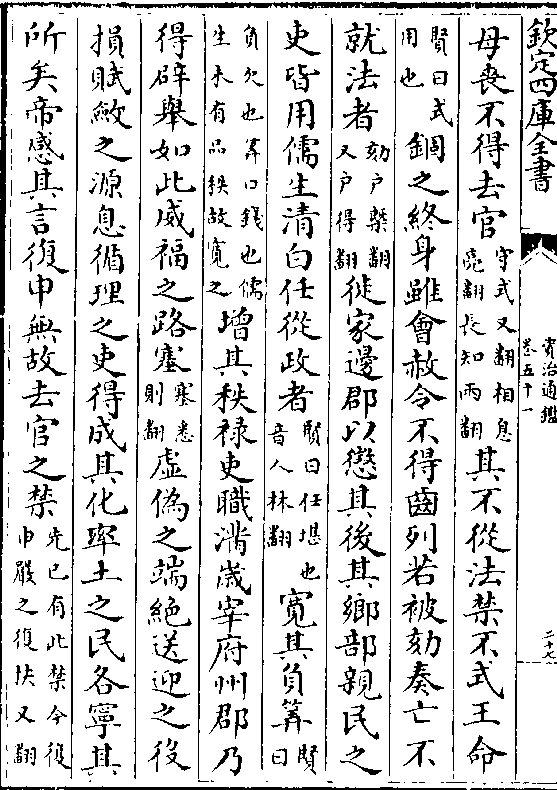 欽定四庫全書
資治通鑑
卷五十一
二十七
母喪不得去官守式又翻相息亮翻長知兩翻其不從法禁不式王命
賢曰式用也錮之終身雖會赦令不得齒列若被劾奏亡不
就法者劾戶槩翻又戶得翻徙家邊郡以懲其後其鄉部親民之
吏皆用儒生清白任從政者賢曰任堪也音人林翻寛其負筭賢曰
負欠也筭口錢也儒生未有品秩故寛之增其秩禄吏職滿歲宰府州郡乃
得辟舉如此威福之路塞塞悉則翻虛偽之端絶送迎之役
損賦斂之源息循理之吏得成其化率土之民各寧其
所矣帝感其言復申無故去官之禁先已有此禁今復申嚴之復扶又翻